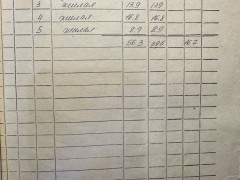 3 жилая 13.9 13.9
4 жилая 16.8 16.8
5 жилая 8.9 8.9
56.3 39.6 16.7